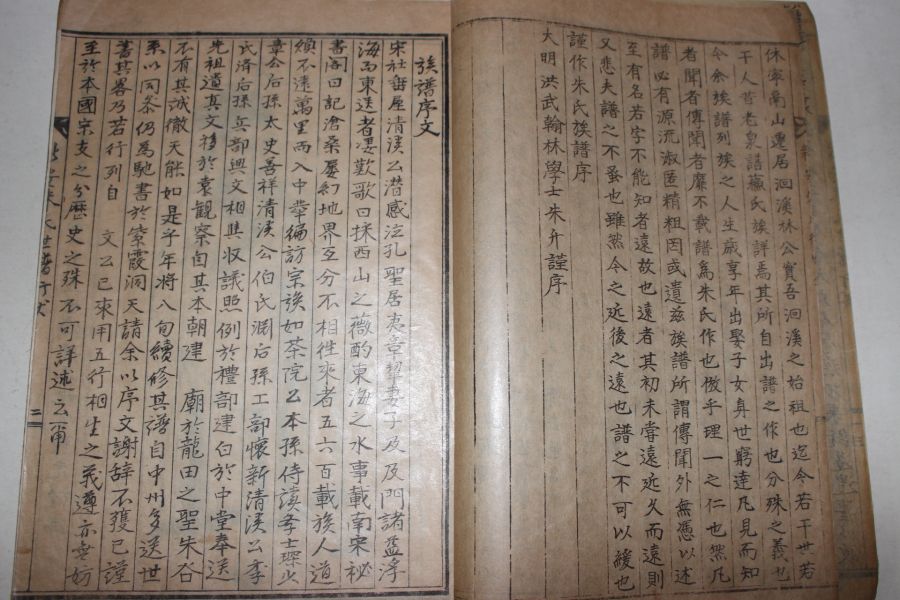 休寧鬲山遷居洄溪林公實吾洄溪之始祖也迄今若干世若
干人昔老泉譜蘇氏族詳焉其所自出譜之作也分殊之義也
今余族譜列族之人生歲享年出娶子女身世窮達凡見而知
者聞者傳聞者靡不載譜為朱氏作也倣乎理一之仁也然凡
譜必有源流淑匿精粗因或遺茲族譜所謂傳聞外無憑以述
至有名若字不能知者遠故也遠者其初未嘗遠近久而遠則
又悲夫譜之不蚤也雖然今之近後之遠也譜之不可以緩也
謹作朱氏族譜序
大明洪武翰林學士朱升謹序
族譜序文
宋社番屋清溪公潛感泣孔聖居夷章挈妻子及及門諸益浮
海而東迭者凄歎歌曰採西山之薇酌東海之水事載南宋祕
書閣曰記滄桑屢幻地界互分不相往來者五六百載族人道
煥不遠萬里而入中華徧訪宗族如茶院公本孫侍讀
韋公后孫太史善祥清溪公伯氏淵后孫工部懷新清溪公季
氏濟后孫兵部興文相與收議照例於禮部建白於中堂奉送
先祖遺真文移於袁觀察自其本朝建 廟於龍田之聖朱谷
不有其誠徹天能如是乎年將八旬續修其譜自中州多送世
系以同茶仍為馳書於紫霞洞天請余以序文謝辭不獲已謹
書其畧乃若行列自 文公已來用五行相生之義遵亦無妨
至於本國宗支之分歷史之殊不可詳述云甯
氏世譜
二